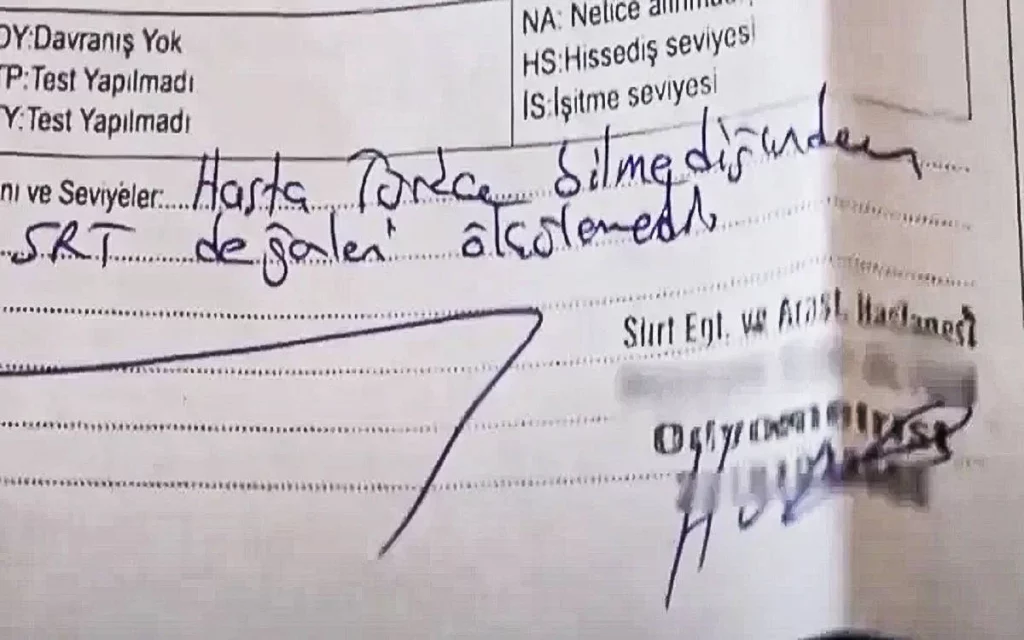 DY:Davranış Yok
TP:Test Yapılmadı
Y:Test Yapılmadı
NA: Netice alınma
HS:Hissediş seviyesi
İS:İşitme seviyesi
nı ve Seviyeler: Hasta Türkçe bilmediğinden
SRT değerleri ölçülemedi
Siirt Eğt. ve Araşt. Hastanesi
Odyometrist